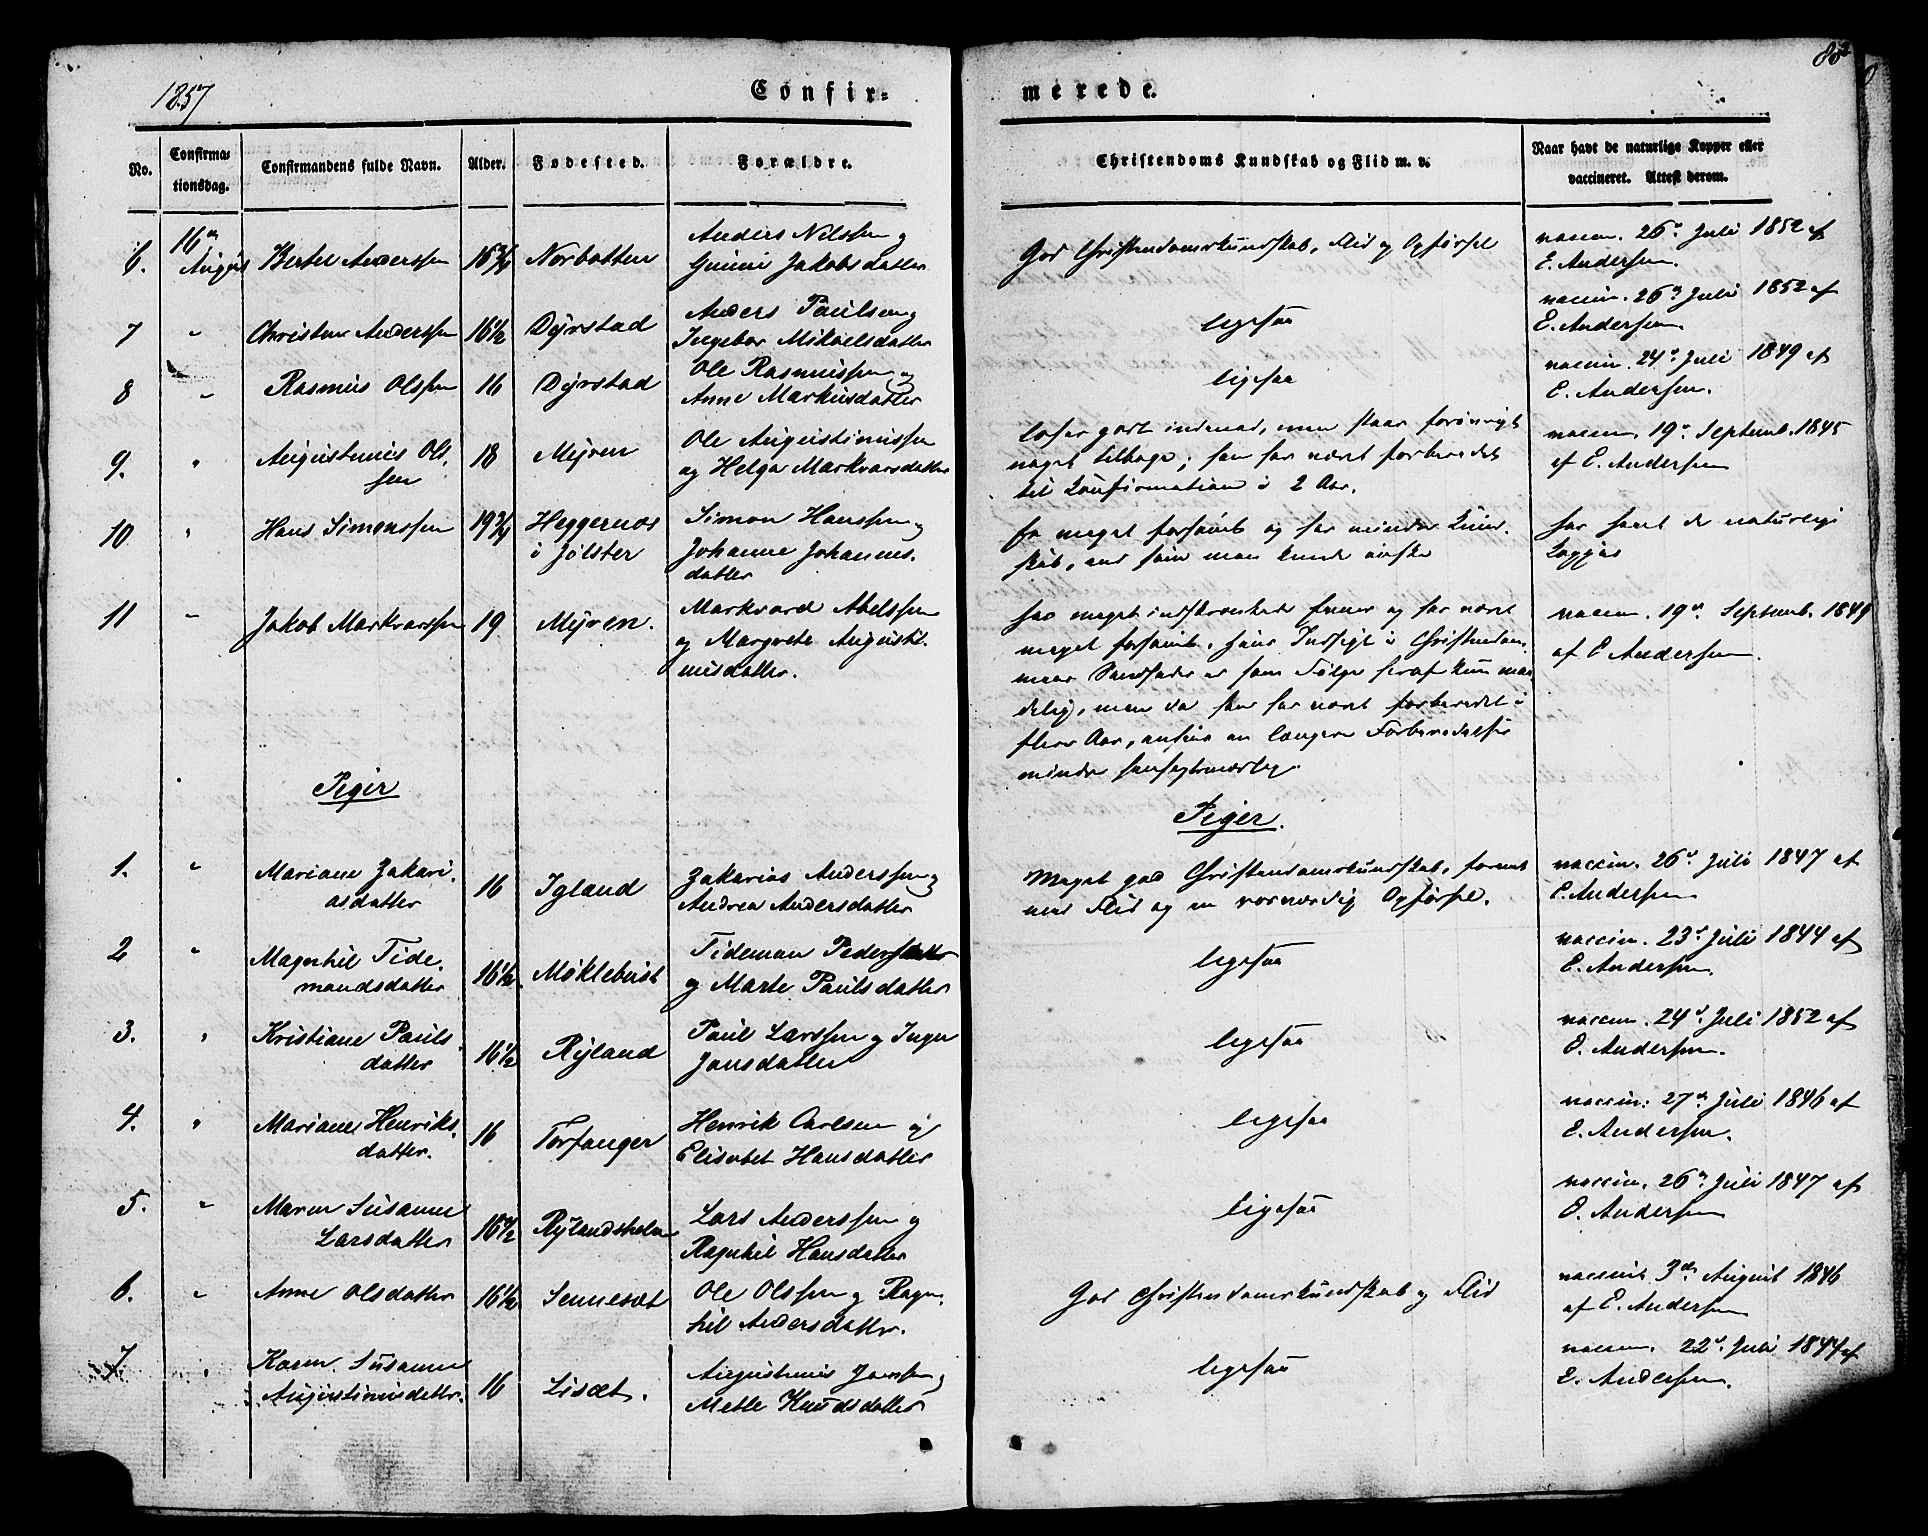 1857
Confir-
merede.
No.
Confirma-
tionsdag.
Confirmandens fulde Navn.
Alder.
Fødested.
Forældre.
Christendoms Kundskab og Flid m. v.
Naar havt de naturlige Kopper eller
vaccineret. Attest derom.
6. 16de August Bertel Anderssen 16 3/4 Norbotten
Anders Nilssen og
Gunni Jakobsdatter
God Christendomskundskab, Flid og Opførsel
vaccin. 26de Juli 1852 af
E. Andersen.
7 " Christen Anderssen 16 1/2 Dyrstad
Anders Paulsen og
Ingebor Mikaelsdatter
ligesaa
vaccin. 26de Juli 1852 af
E. Andersen
8 " Rasmus Olssen 16 Dyrstad
Ole Rasmussen og
Anne Markusdatter
ligesaa
vaccin. 24de Juli 1849 af
E. Andersen.
9. " Augustinus Ols-
sen
18 Myren
Ole Augustinussen
og Helga Markvarsdatter
læser godt indenad, men staar forøvrigt
noget tilbage; han har været forberedet
til Konfirmation i 2 Aar.
vaccin. 19de Septemb. 1845
af E. Andersen
10 " Hans Simonssen 19 3/4 Heggernæs
i Jølster
Simon Hanssen og
Johanne Johannes-
datter
er meget forsømt og har mindre Kund-
skab, end som man kunde ønske
har havt de naturlige
Kopper
11 " Jakob Markvarssen 19 Myren.
Markvard Abelssen
og Margrete Augusti-
nusdatter.
har meget indskrænkede Evner og har været
meget forsømt, hans Indsigt i Christendom-
mens Sandheder er som Følge heraf kun maa-
delig, men da han har været forberedet i
flere Aar, ansees en længere Forberedelse
mindre hensigtsmæssig.
vaccin. 19de Septemb. 1849
af E Andersen.
Piger
Piger.
1. " Mariane Zakari-
asdatter
16 Igland
Zakarias Anderssen og
Andrea Andersdatter
Meget god Christendomskundskab,
Flid og en rosværdig Opførsel.
vaccin. 26de Juli 1847 af
E. Andersen
2 " Magnhil Tide-
mandsdatter
16 1/2. Myklebust
Tideman Pederssen
og Marte Paulsdatter
ligesaa
vaccin. 23de Juli 1844 af
E. Andersen.
3. " Kristiane Pauls-
datter
16 1/2 Ryland
Paul Larssen og Inger
Jonsdatter
ligesaa
vaccin. 24de Juli 1852 af
E. Andersen.
4. " Mariane Henriks-
datter.
16 Torfanger
Henrik Carlsen og
Elisabet Hansdatter
ligesaa
vaccin. 27de Juli 1846 af
E. Andersen.
5. " Maren Susanne
Larsdatter
16 1/2 Rylandsholm
Lars Anderssen og
Ragnhil Hansdatter
ligesaa
vaccin. 26de Juli 1847 af
E. Andersen
6. " Anne Olsdatter 16 1/2 Sennesæt
Ole Olssen og Ragn-
hil Andersdatter.
God Christendomskundskab og Flid
vaccin 3de August 1846
af E. Andersen
7. " Karen Susanne
Augustinusdatter.
16 Lisæt.
Augustinus Jonssen og
Mette Knudsdatter
ligesaa
vaccin. 22de Juli 1844 af
E. Andersen.